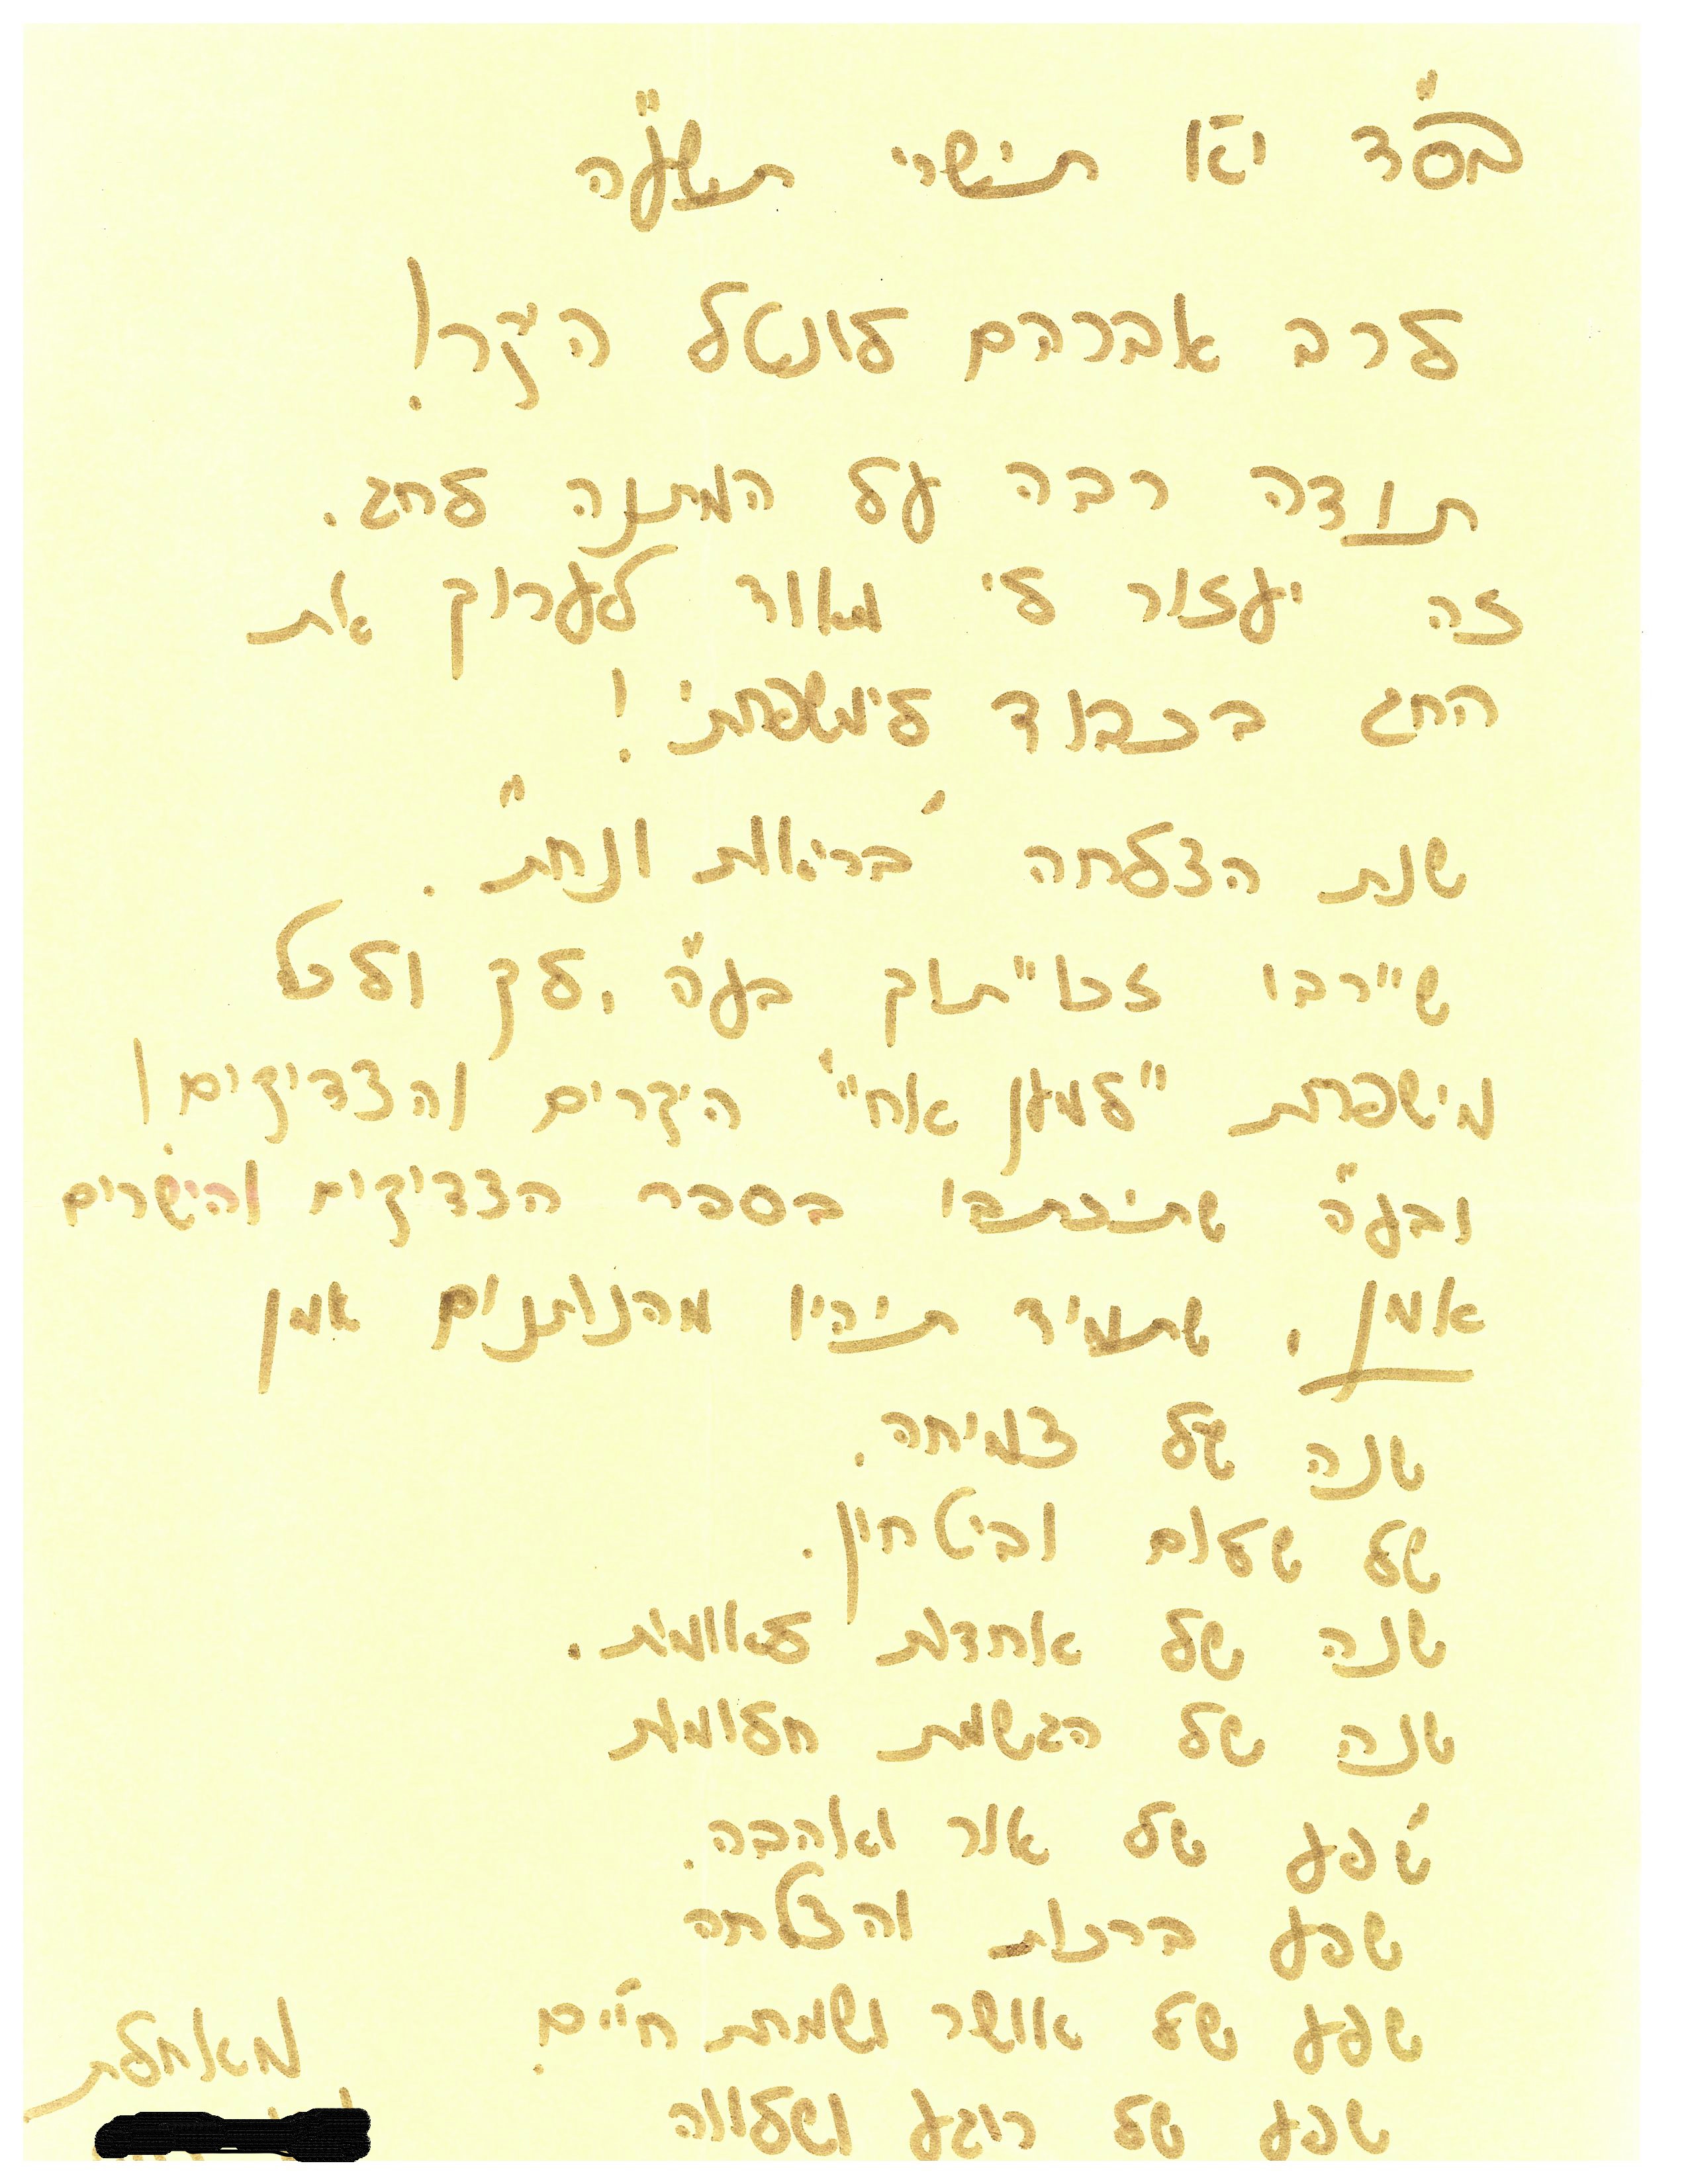 בס"ד י"א תישרי תשע"ה
לרב אברהם לונטל היקר!
תודה רבה על המתנה לחג.
זה יעזור לי מאוד לערוך את
החג בכבוד לימשפחתי!
שנת הצלחה בריאות ונחת.
שיירבו זכויותיך בע"ה, לך ולכל
מישפחת "למען אחיי" היקרים והצדיקים!
ובע"ה שתיכתבו בספר הצדיקים והישרים
אמן, שתמיד תיהיו מהנותנים אמן
שנה של צמיחה.
של שלום וביטחון.
שנה של אחדות לאומית.
שנה של הגשמת חלומות
שפע של אור ואהבה.
שפע ברכות והצלחה
שפע של אושר ושמחת חיים.
שפע של רוגע ושלווה
מאחלת